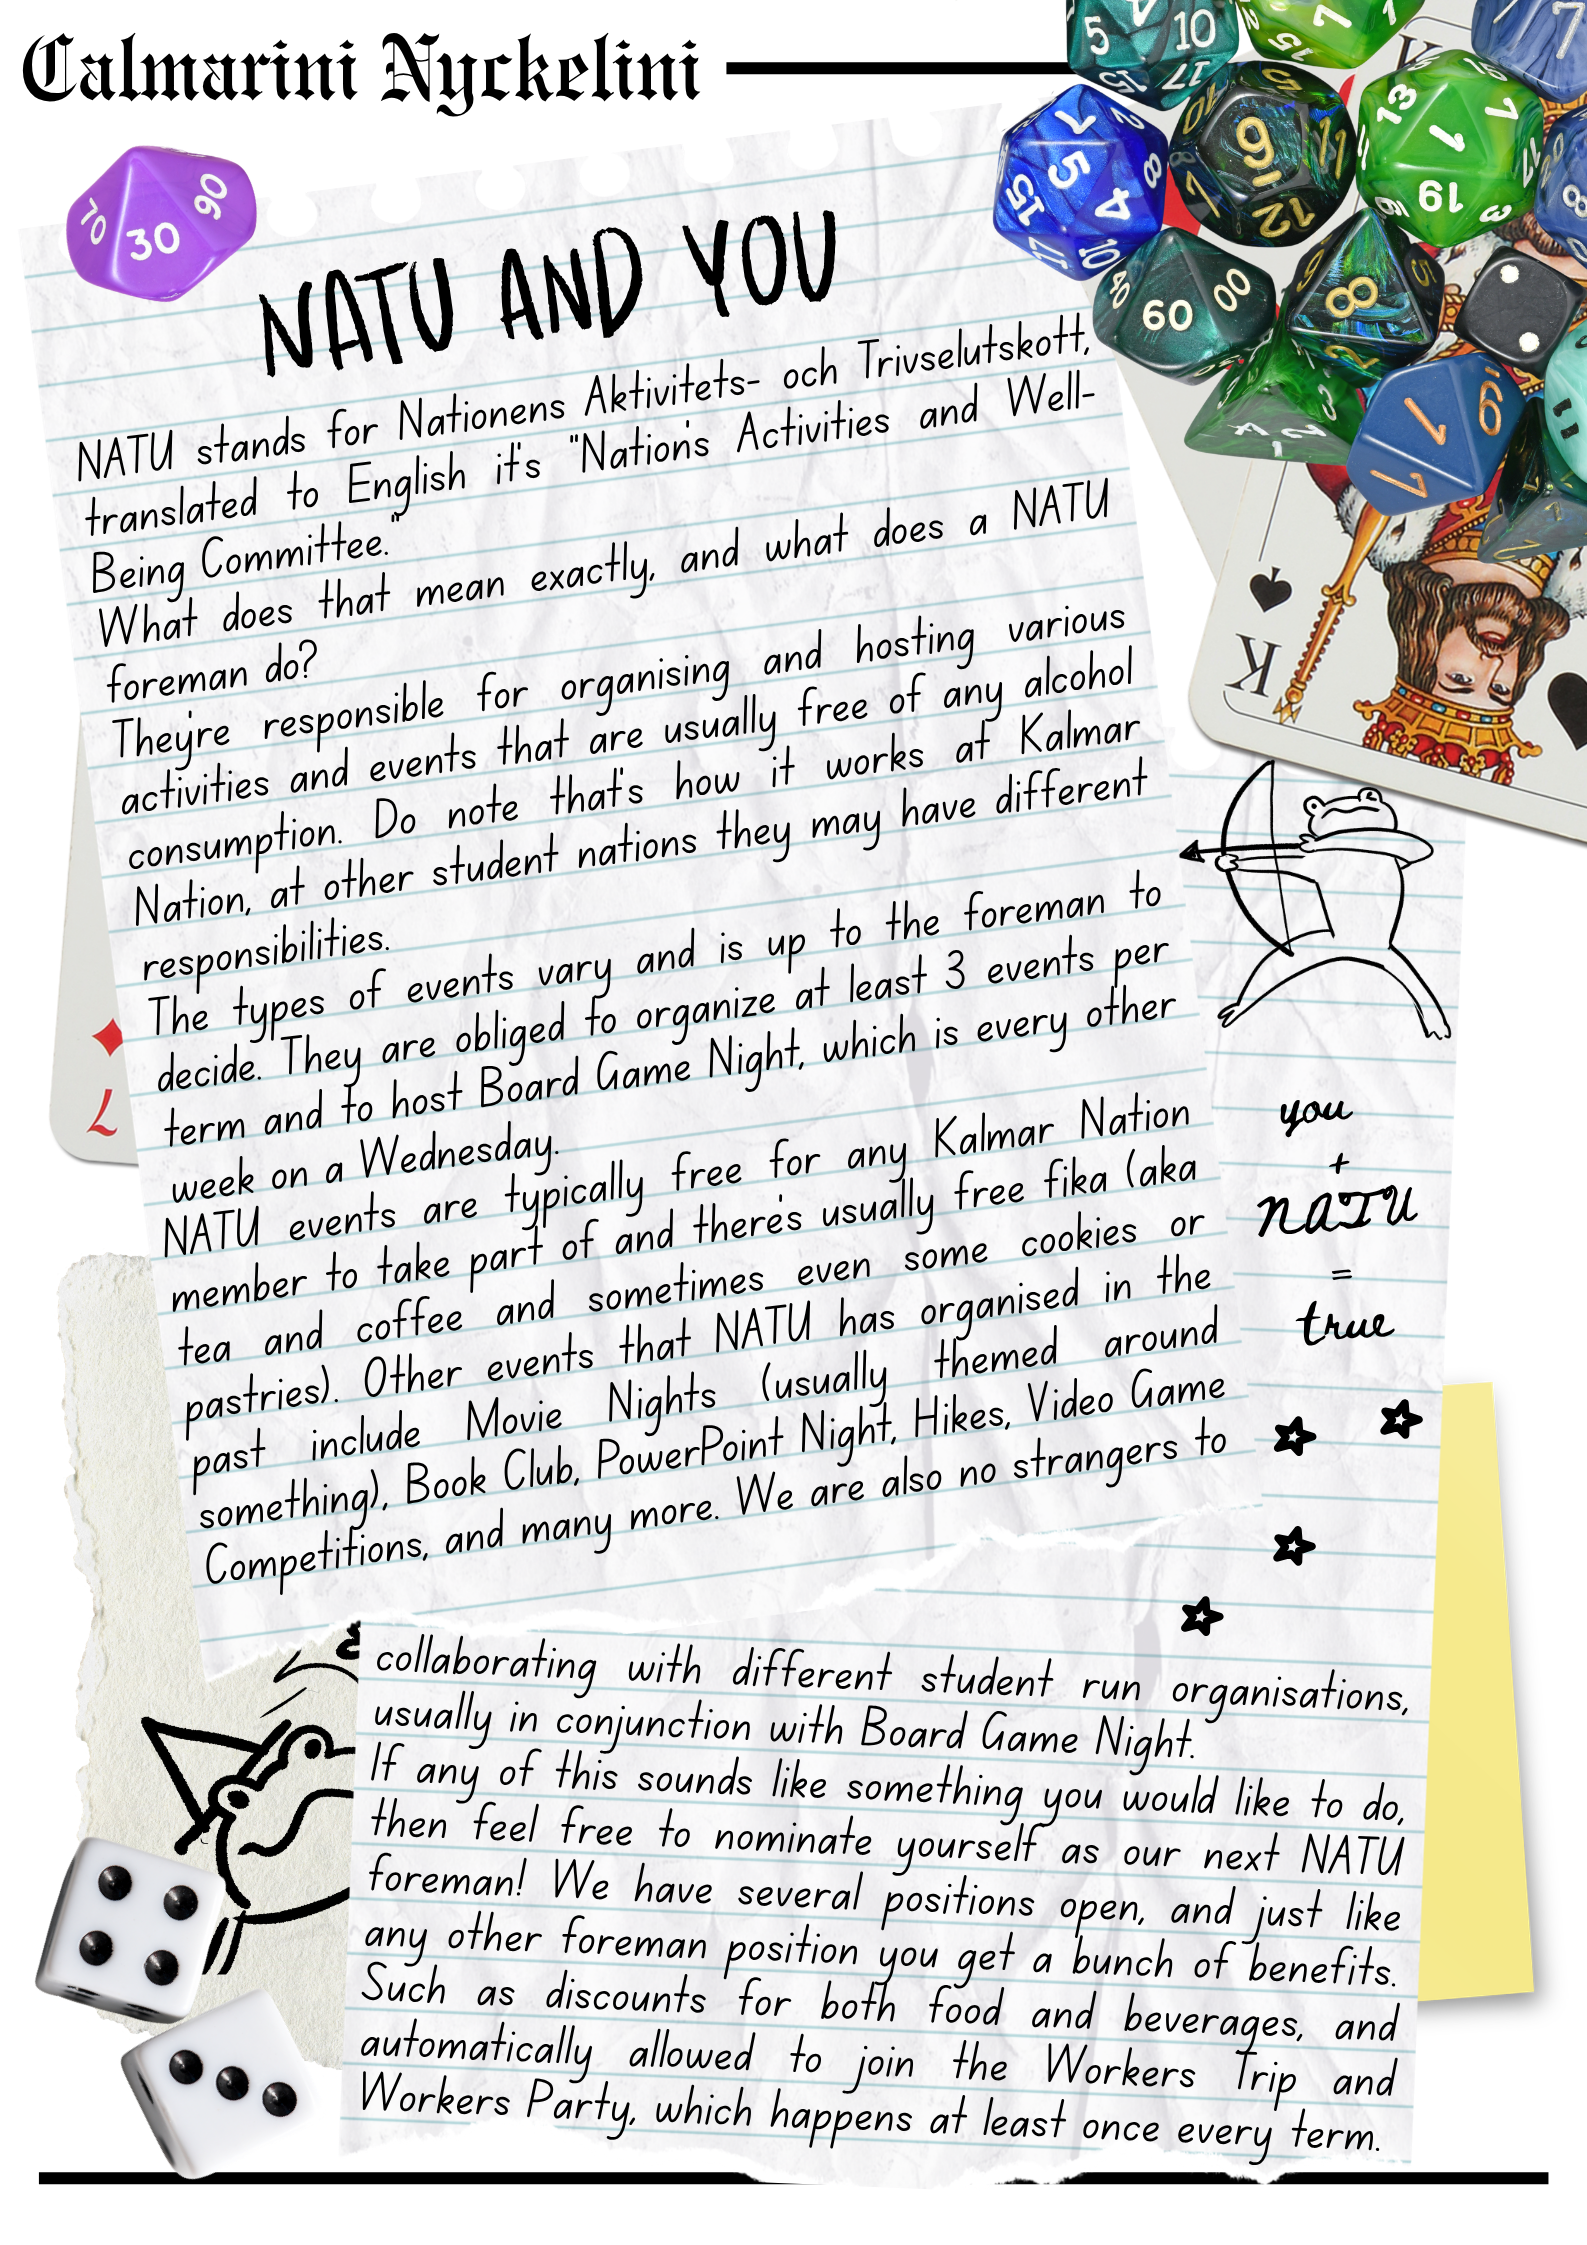 Calmarini Nyckelini
NATU AND YOU
NATU stands for Nationens Aktivitets- och Trivselutskott,
translated to English it's "Nation's Activities and Well-
Being Committee."
What does that mean exactly, and what does a NATU
foreman do?
They're responsible for organising and hosting various
activities and events that are usually free of any alcohol
consumption. Do note that's how it works at Kalmar
Nation, at other student nations they may have different
responsibilities.
The types of events vary and is up to the foreman to
decide. They are obliged to organize at least 3 events per
term and to host Board Game Night, which is every other
week on a Wednesday.
NATU events are typically free for any Kalmar Nation
member to take part of and there's usually free fika (aka
tea and coffee and sometimes even some cookies or
pastries). Other events that NATU has organised in the
past include Movie Nights (usually themed around
something), Book Club, PowerPoint Night, Hikes, Video Game
Competitions, and many more. We are also no strangers to
collaborating with different student run organisations,
usually in conjunction with Board Game Night.
If any of this sounds like something you would like to do,
then feel free to nominate yourself as our next NATU
foreman! We have several positions open, and just like
any other foreman position you get a bunch of benefits.
Such as discounts for both food and beverages, and
automatically allowed to join the Workers Trip and
Workers Party, which happens at least once every term.
you
+
NATU
=
true
70
30
90
5
10
17
15
15
7
1
7
7
2
5
8
15
4
17
10
10
5
6
11
12
7
13
16
7
1
17
19
3
40
60
00
8
3
4
2
1
9
1
7
K
K
7